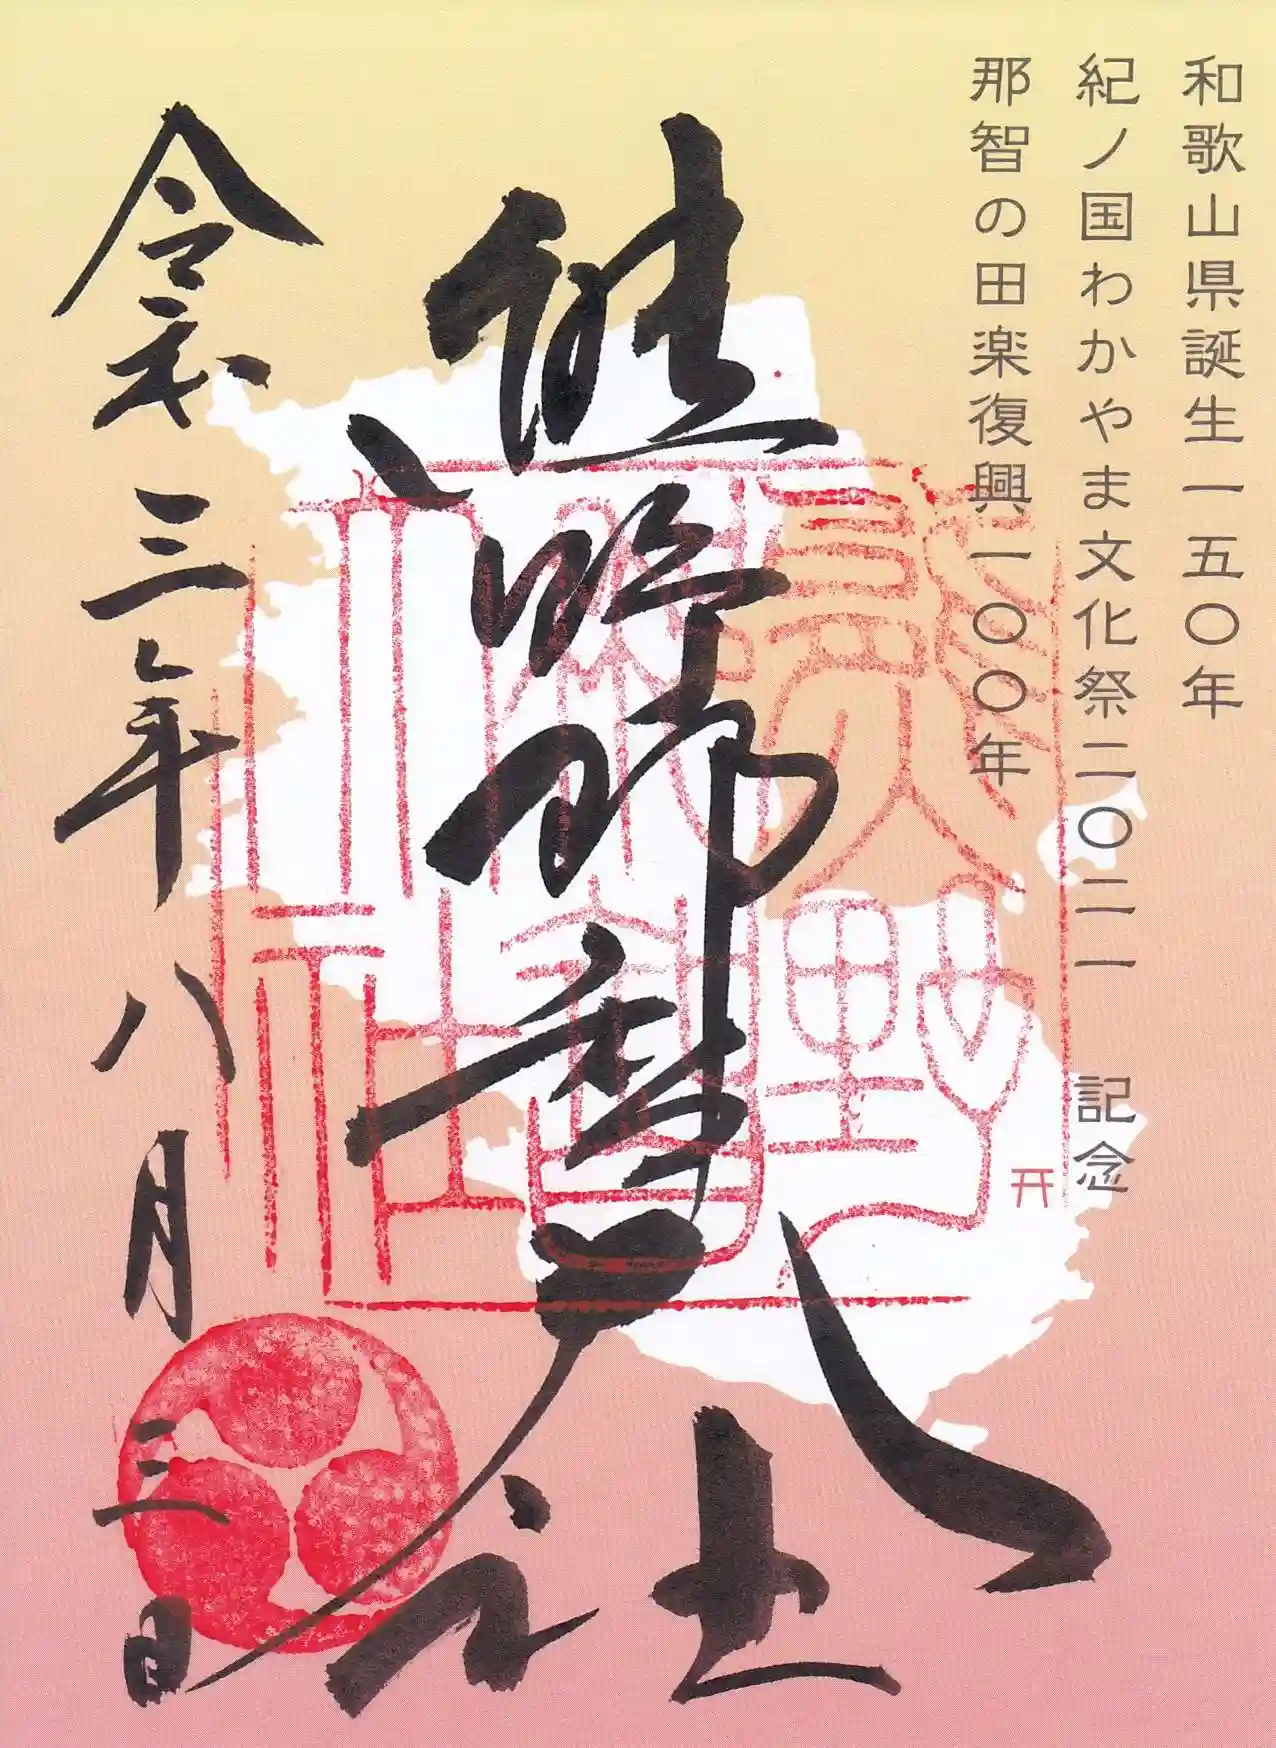 和歌山県誕生一五〇年
紀ノ国わかやま文化祭二〇二一　記念
那智の田楽復興一〇〇年
熊野那智大社
令和三年八月三日